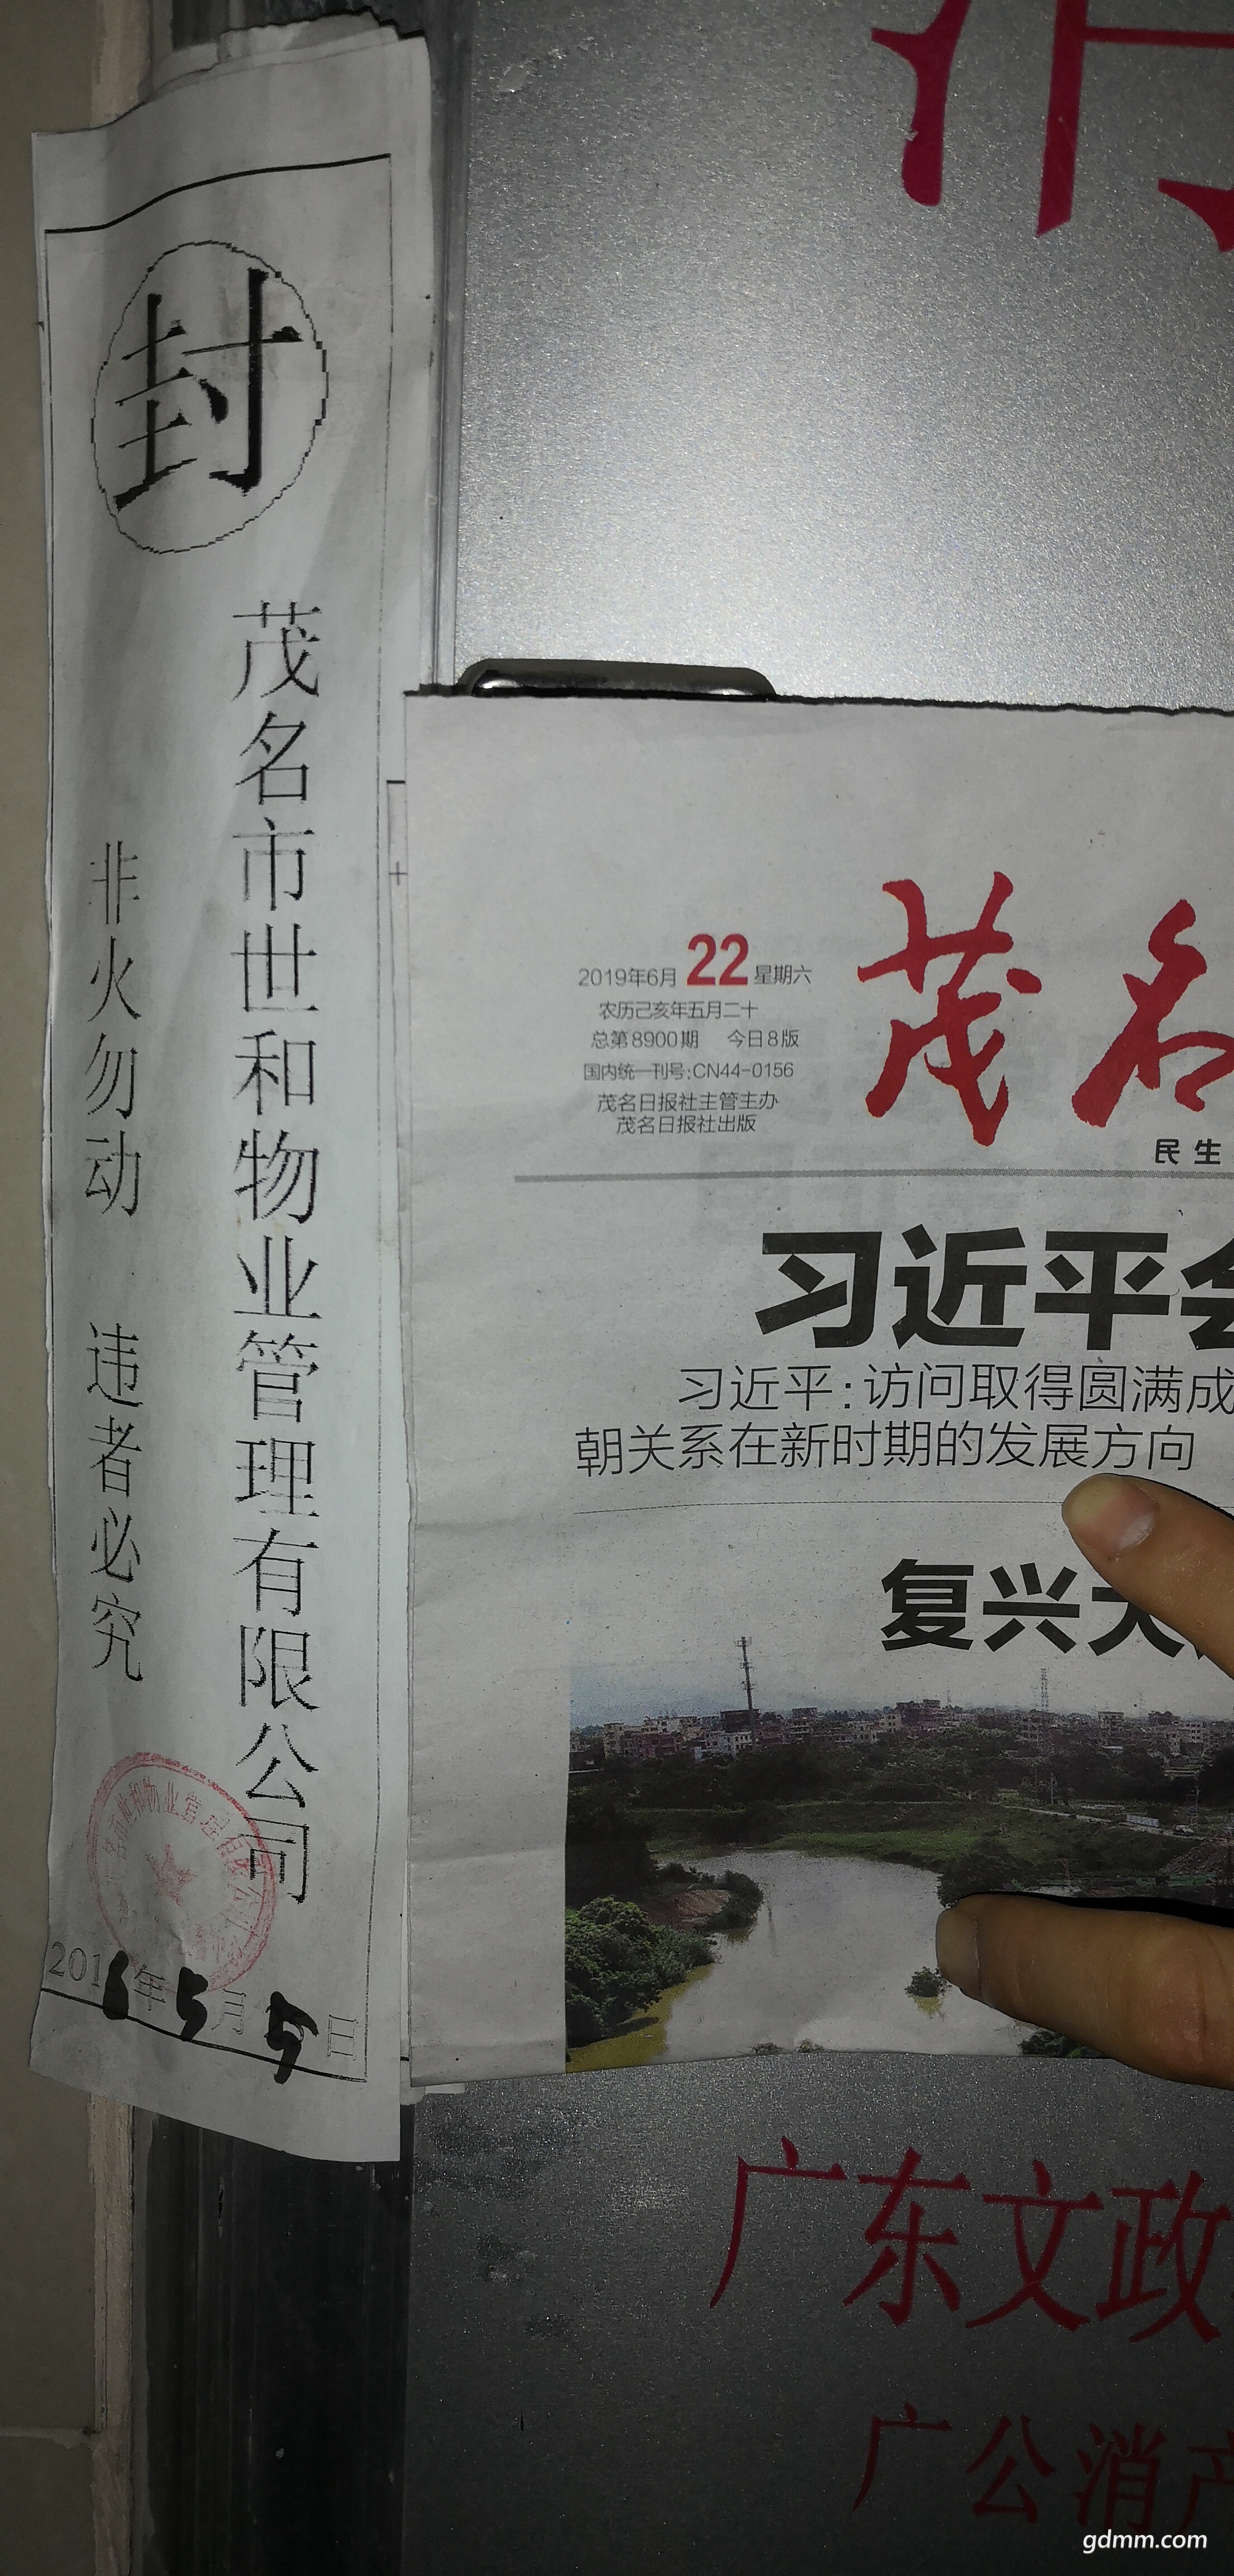 封
茂名市世和物业管理有限公司
非火勿动 违者必究
2016年5月5日
茂名
2019年6月22星期六
农历己亥年五月二十
总第8900期 今日8版
国内统一刊号:CN44-0156
茂名日报社主管主办
茂名日报社出版
民生
习近平会
习近平:访问取得圆满成
朝关系在新时期的发展方向
复兴大
广东文政
广公消产
gdmm.com